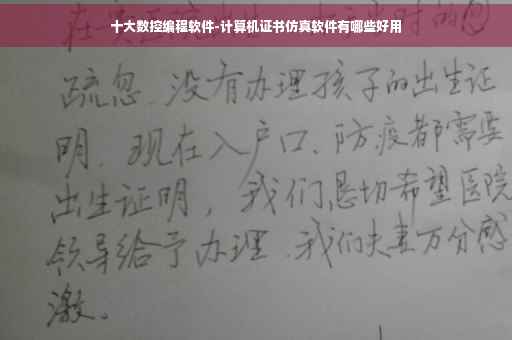 十大数控编程软件-计算机证书仿真软件有哪些好用
疏忽、没有办理孩子的出生证
明、现在入户口、防疫都需要
出生证明，我们恳切希望医院
领导给予办理、我们夫妻万分感
激。